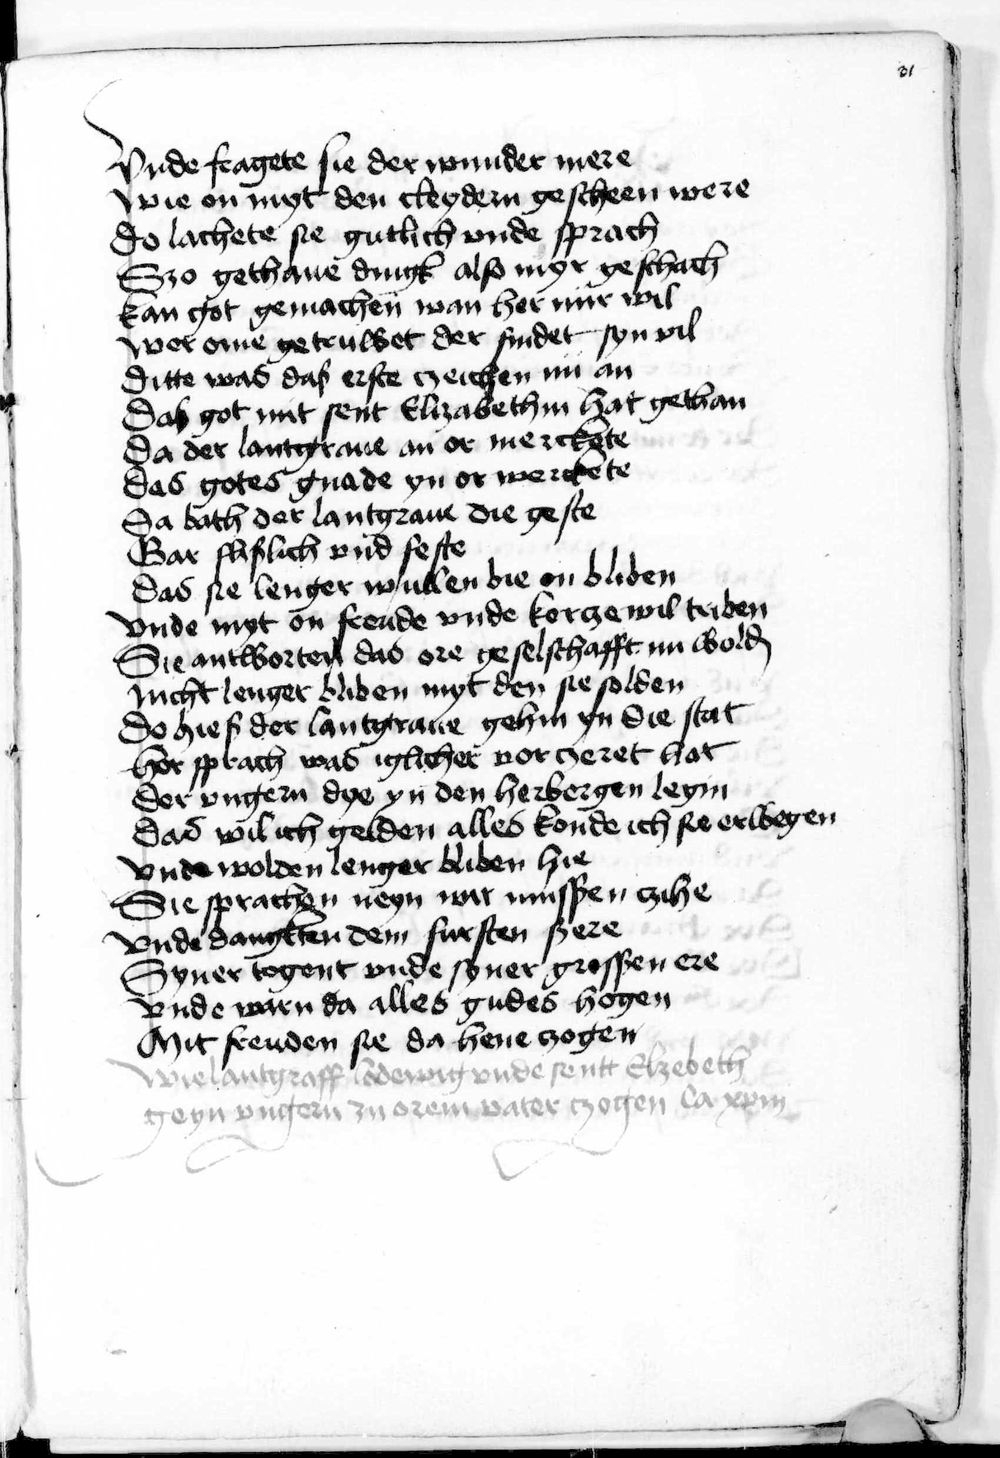 31
Vnde fragete sie der wunder mere
Wie on myt den cleydern gescheen were
Do lachete sie gutlich vnde sprach
Szo gethane dingk also myr geschach
kan got gemachen wan her nur wil
wer ome getruwet der findet syn vil
Ditte was das erste czeichen nu an
Das got mit sent Elizabethin hat gethan
Da der lantgraue an or merckete
Das gotes gnade yn or werckete
Da bath der lantgraue die geste
Gar flislich vnd feste
Das sie lenger wullen bie on bliben
vnde myt on freude vnde korczewil triben
Sie antworten das ore geselschafft nu wolden
nicht lenger bliben myt den sie solden
Do hies der lantgraue gehin yn die stat
her sprach was iglicher vorczeret hat
der vngern dye yn den herbergen legin
Das wil ich gelden alles konde ich sie erwegen
vnde wolden lenger bliben hie
Sie sprachen neyn wir mussen czihe
vnde dangkten dem fursten szere
Syner togent vnde syner grossen ere
vnde warn da alles gudes hogen
Mit freuden sie da hene czogen
Wie lantgraff lodewig vnde sentt Elzebeth
geyn vngern zu orem vater czogen Ca xviii